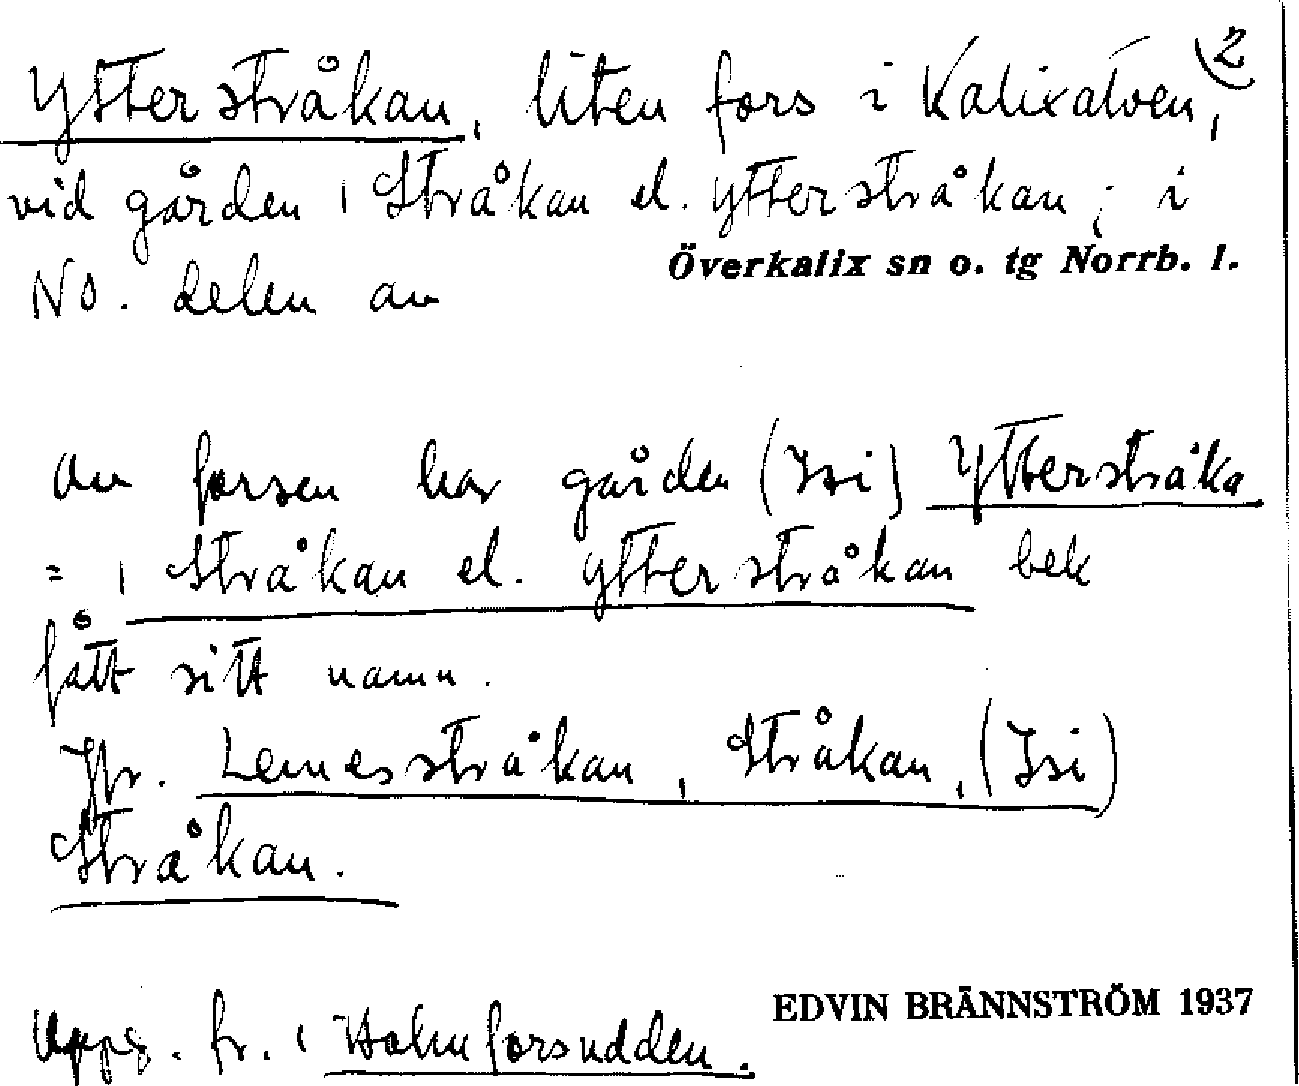 2
Ytterstråkan, liten fors i Kalixälven,
vid gården i Stråkan el. ytterstråkan; i
Överkalix sn o. tg Norrb. l.
NO. delen av
Av forsen har gården (Isi) Ytterstråka
= i Stråkan el. ytterstråkan bek
fått sitt namn.
Jfr. Lemesstråkan, Stråkan, (Isi)
Stråkan.
EDVIN BRÄNNSTRÖM 1937
Uppg. fr. i Holmforsudden.